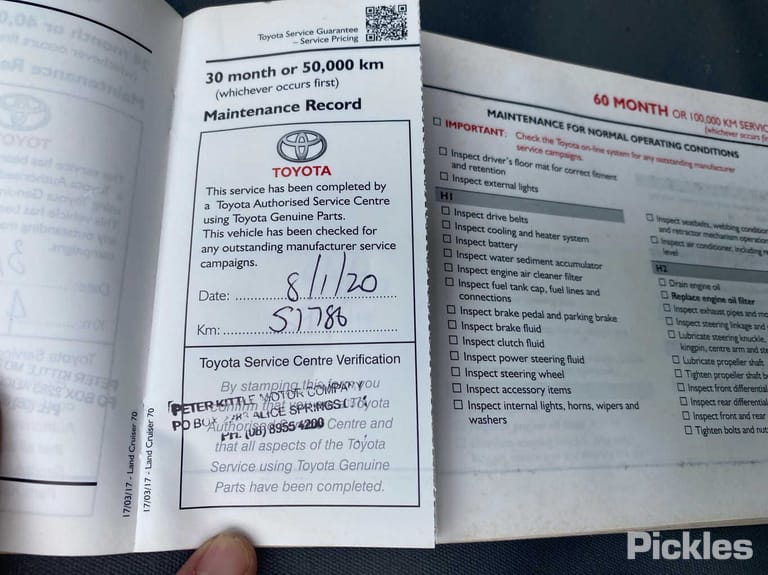 Toyota Service Guarantee
– Service Pricing
30 month or 50,000 km
(whichever occurs first)
Maintenance Record
TOYOTA
This service has been completed by
a Toyota Authorised Service Centre
using Toyota Genuine Parts.
This vehicle has been checked for
any outstanding manufacturer service
campaigns.
Date: 8/1/20
Km: 51786
Toyota Service Centre Verification
By stamping this form you
confirm that you are a Toyota
Authorised Service Centre and
that all aspects of the Toyota
Service using Toyota Genuine
Parts have been completed.
PETER KITTLE MOTOR COMPANY
PO BOX ALICE SPRINGS
PH. (08) 8955 4200
17/03/17 - Land Cruiser 70
17/03/17 - Land Cruiser 70
60 MONTH OR 100,000 KM SERVIC
(whichever occurs fir
MAINTENANCE FOR NORMAL OPERATING CONDITIONS
IMPORTANT: Check the Toyota on-line system for any outstanding manufacturer
service campaigns.
Inspect driver's floor mat for correct fitment
and retention
Inspect external lights
H1
Inspect drive belts
Inspect cooling and heater system
Inspect battery
Inspect water sediment accumulator
Inspect engine air cleaner filter
Inspect fuel tank cap, fuel lines and
connections
Inspect brake pedal and parking brake
Inspect brake fluid
Inspect clutch fluid
Inspect power steering fluid
Inspect steering wheel
Inspect accessory items
Inspect internal lights, horns, wipers and
washers
Inspect seatbelts, webbing condition
and retractor mechanism operation
Inspect air conditioner, including re
level
H2
Drain engine oil
Replace engine oil filter
Inspect exhaust pipes and mo
Inspect steering linkage and
Lubricate steering knuckle,
kingpin, centre arm and ste
Lubricate propeller shaft
Tighten propeller shaft b
Inspect front differential
Inspect rear differential
Inspect front and rear
Tighten bolts and nut
Pickles